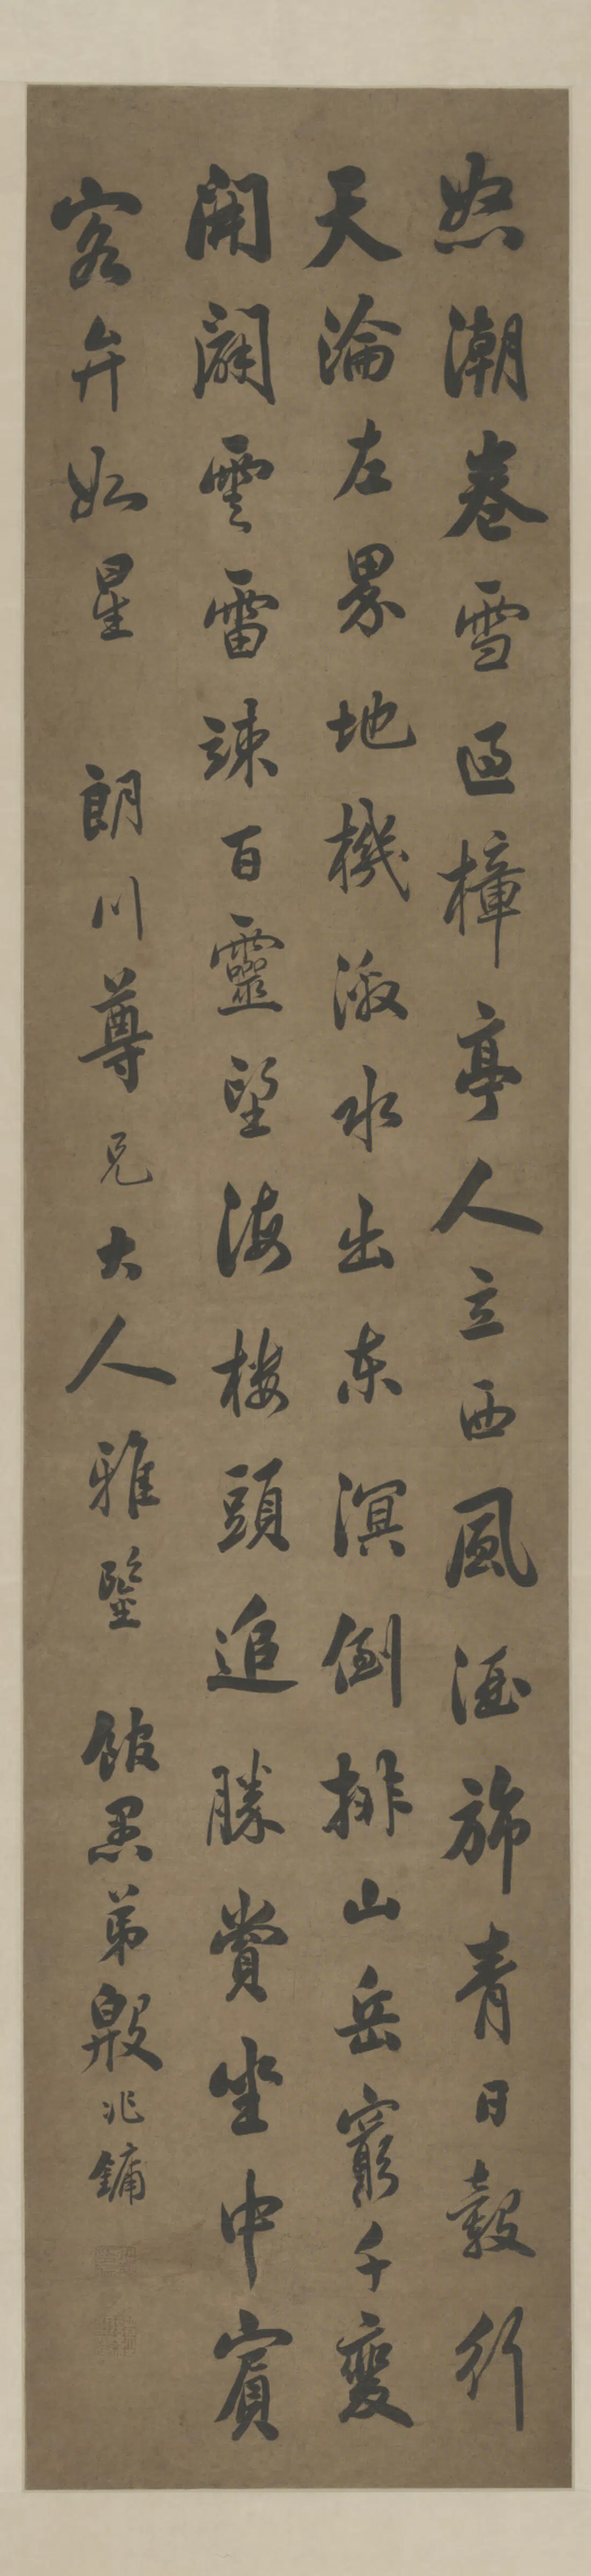 怒潮卷雪過樟亭人立西風酒旆青日轂行
天淪左界地機激水出東溟倒排山岳窮千變
開闢雲雷竦百靈望海樓頭追勝賞坐中賓
客弁如星 朗川尊兄大人雅鑒 館愚弟殷兆鏞